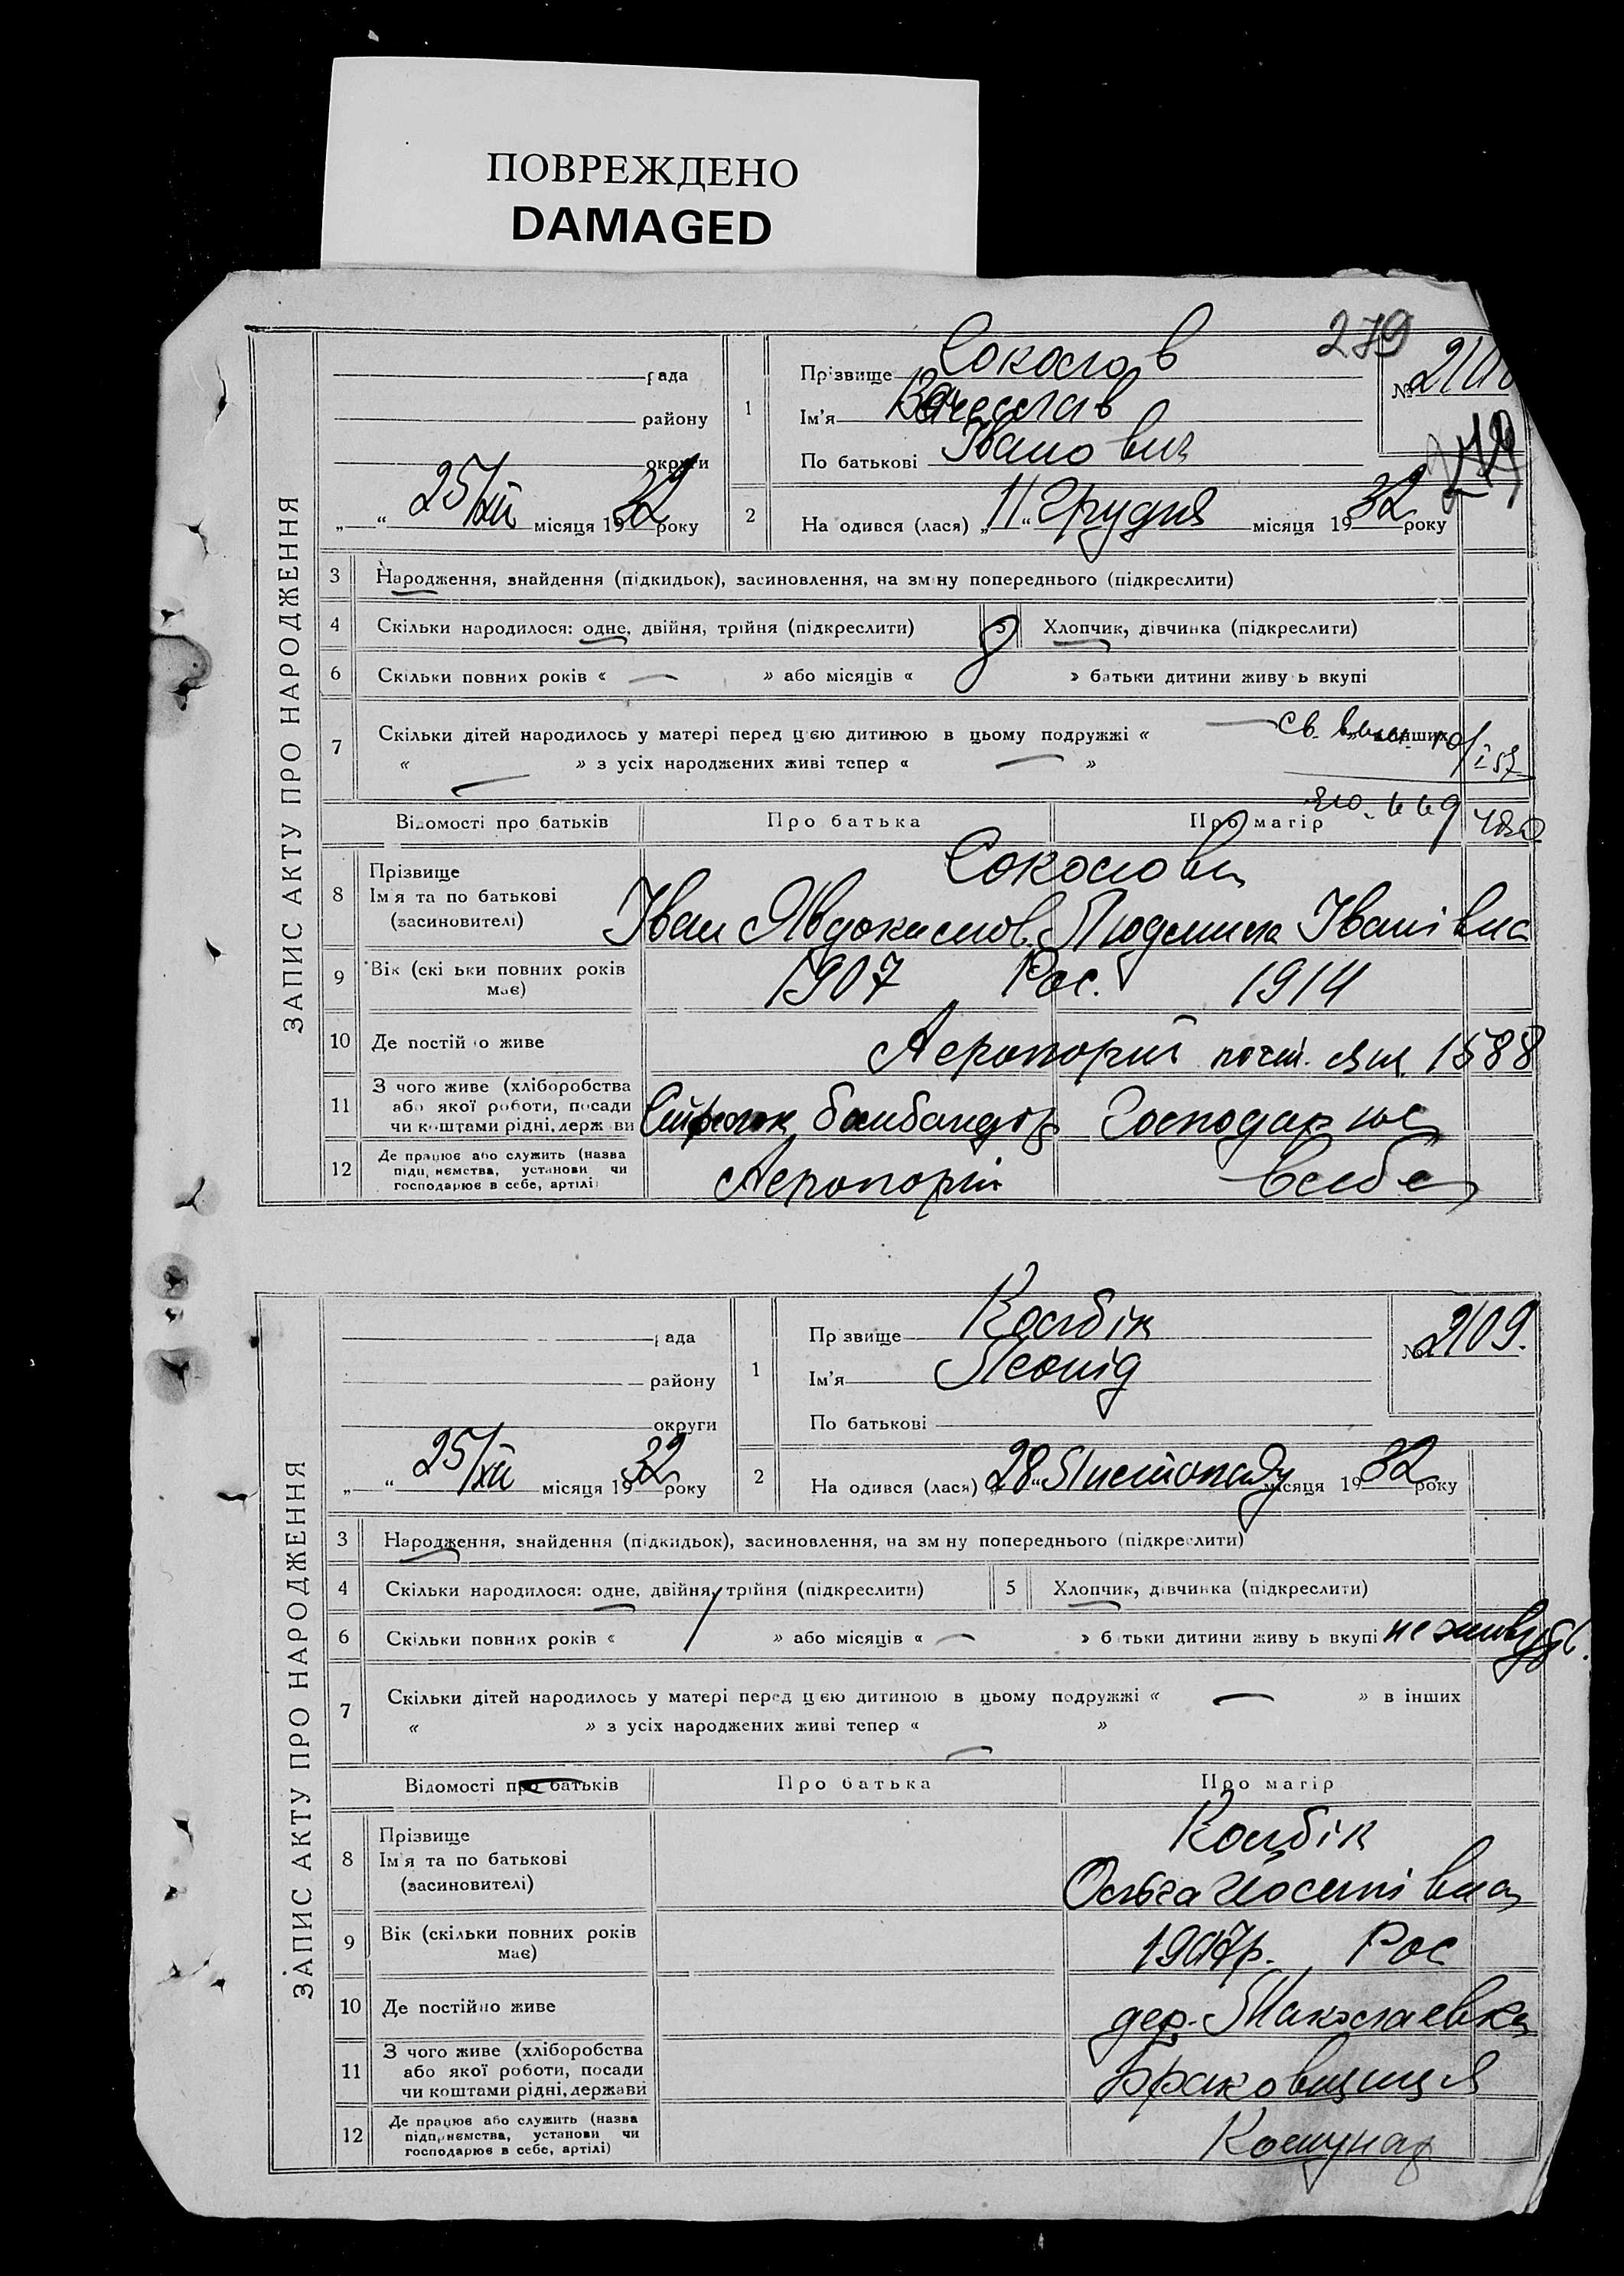 ПОВРЕЖДЕНО
DAMAGED
279
ЗАПИС АКТУ ПРО НАРОДЖЕННЯ
рада
району
округи
„ “ 25/XII місяця 1932 року
1
Прізвище Соколов
Ім'я Вячеслав
По батькові Іванович
№
279
2
На одився (лася) „11“ Грудня місяця 1932 року
3 Народження, знайдення (підкидьок), засиновлення, на зм ну попереднього (підкреслити)
4 Скільки народилося: одне, двійня, трійня (підкреслити) 5 Хлопчик, дівчинка (підкреслити)
6 Скільки повних років « — » або місяців « » батьки дитини живу ь вкупі
7 Скільки дітей народилось у матері перед цією дитиною в цьому подружжі « —
« — » з усіх народжених живі тепер « — »
Св.
Відомості про батьків Про батька Про матір
8 Прізвище
Ім'я та по батькові
(засиновителі)
Соколови
Іван Явдокимов. Людмила Іванівна
9 Вік (скі ьки повних років має)
1907 Рос. 1914
10 Де постій о живе
Аеропорт почт. ящ. 1588
11 З чого живе (хліборобства
або якої роботи, посади
чи коштами рідні, держ ви
Стрілок Господарює
12 Де працює або служить (назва
підп, иємства, установи чи
господарює в себе, артілі)
Аеропорт в себе
ЗАПИС АКТУ ПРО НАРОДЖЕННЯ
рада
району
округи
„ “ 25/XII місяця 1932 року
1
Пр звище Колбік
Ім'я Леонід
По батькові
№ 2109.
2
На одився (лася) „28“ Листопаду місяця 1932 року
3 Народження, знайдення (підкидьок), засиновлення, на зм ну попереднього (підкреслити)
4 Скільки народилося: одне, двійня, трійня (підкреслити) 5 Хлопчик, дівчинка (підкреслити)
6 Скільки повних років « » або місяців « — » б тьки дитини живу ь вкупі не живуть.
7 Скільки дітей народилось у матері перед цією дитиною в цьому подружжі « — » в інших
« » з усіх народжених живі тепер « — »
Відомості про батьків Про батька Про матір
8 Прізвище
Ім'я та по батькові
(засиновителі)
Колбік
Ольга Йосипівна
9 Вік (скільки повних років має)
1907р. Рос
10 Де постійно живе
дер. Миколаевка
11 З чого живе (хліборобства
або якої роботи, посади
чи коштами рідні, держави
Браковщиця
12 Де працює або служить (назва
підприємства, установи чи
господарює в себе, артілі)
Комунар